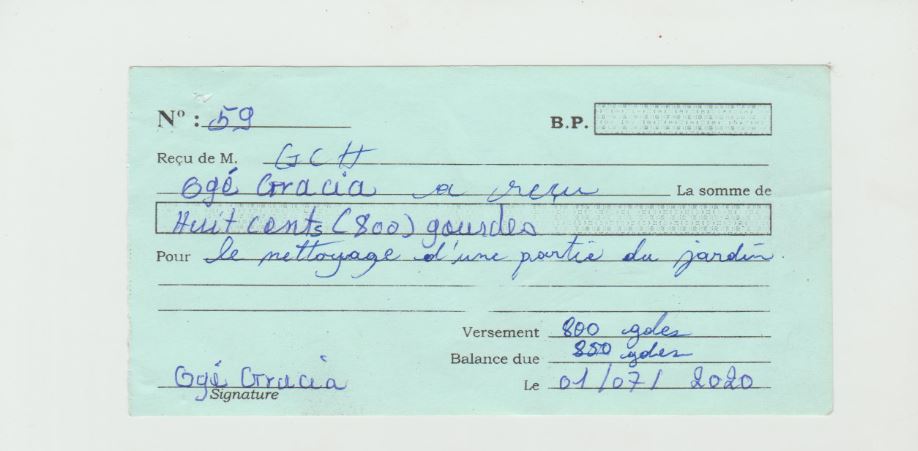 N° : 59
B.P.
Reçu de M. GCH
Ogé Gracia a reçu La somme de
Huit cents (800) gourdes
Pour le nettoyage d'une partie du jardin.
Versement 800 gdes
Balance due 850 gdes
Ogé Gracia Le 01/07/2020
Signature